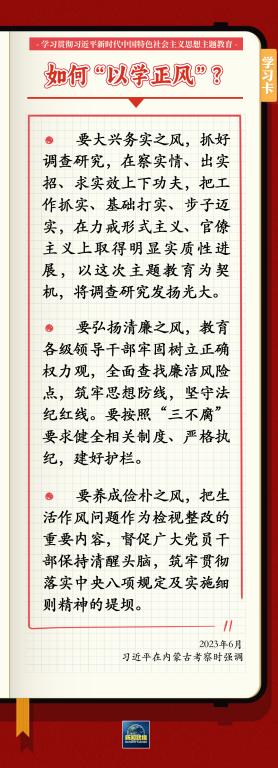 ·学习贯彻习近平新时代中国特色社会主义思想主题教育·
学习卡
如何“以学正风”?
要大兴务实之风，抓好
调查研究，在察实情、出实
招、求实效上下功夫，把工
作抓实、基础打实、步子迈
实，在力戒形式主义、官僚
主义上取得明显实质性进
展，以这次主题教育为契
机，将调查研究发扬光大。
要弘扬清廉之风，教育
各级领导干部牢固树立正确
权力观，全面查找廉洁风险
点，筑牢思想防线，坚守法
纪红线。要按照“三不腐”
要求健全相关制度、严格执
纪，建好护栏。
要养成俭朴之风，把生
活作风问题作为检视整改的
重要内容，督促广大党员干
部保持清醒头脑，筑牢贯彻
落实中央八项规定及实施细
则精神的堤坝。
2023年6月
习近平在内蒙古考察时强调
新闻联播